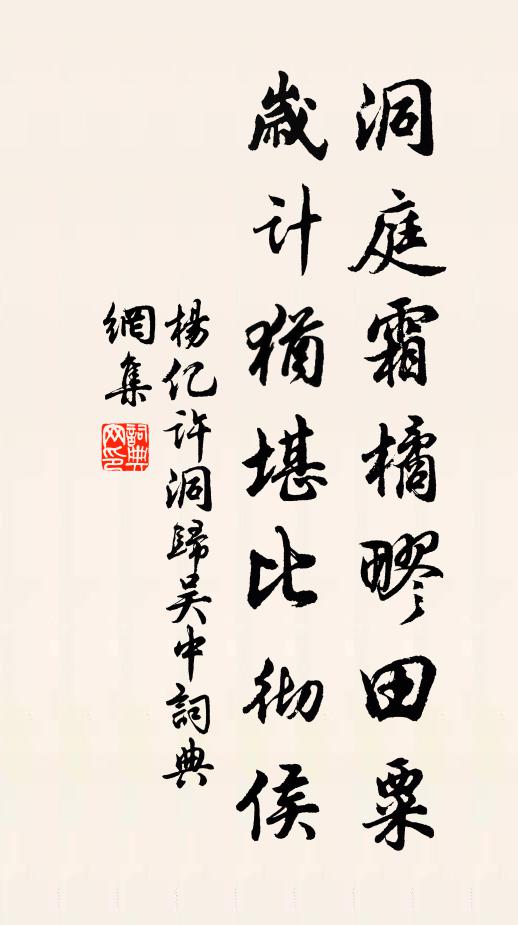 洞庭霜橘疁田粟
歲计猶堪比彻侯
楊亿许洞歸吴中詞典
網集
詞典網印